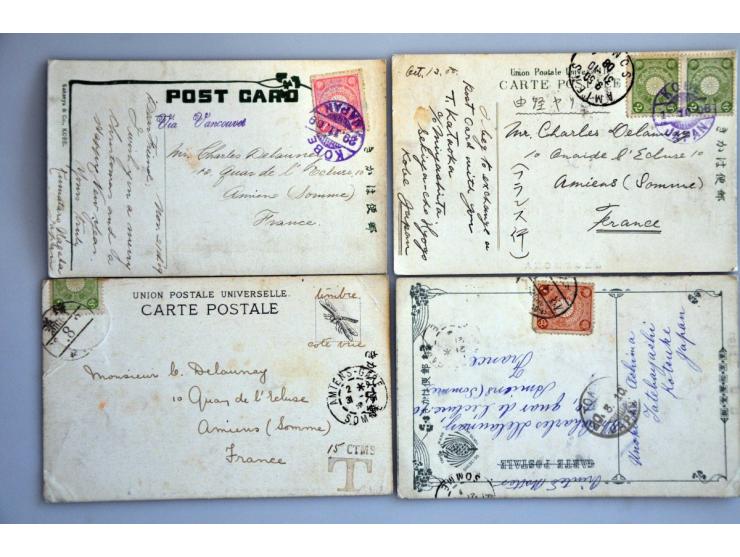 POST CARD
Sakaeya & Co., KOBE.
Via Vancouver
KOBE
JAPAN
Dear Friend
I wish you a merry
Christmas and a
Happy New Year
Yours truly
Mr. Charles Delaunay
10, Quai de l'Ecluse, 10
Amiens (Somme)
France.
きかは便郵
Union Postale Universelle
CARTE POSTALE
Oct. 13. 05
I beg to exchange
Post Card with you
T. Kataoka
Kobe Japan
Mr. Charles Delaunay
10 Quaide l'Ecluse 10
Amiens (Somme)
France
(フランス行)
きかは便郵
UNION POSTALE UNIVERSELLE.
CARTE POSTALE
timbre
côté vue
Monsieur C. Delaunay
10 Quay de l'Ecluse
Amiens (Somme)
France
きかは便郵
AMIENS-GARE
SOMME
15 CTMS
T
CARTE POSTALE
Charles Delaunay
10 quai de l'ecluse 10
Amiens (Somme
France
きかは便郵
Tatebayashi
Kotsuke
Japan